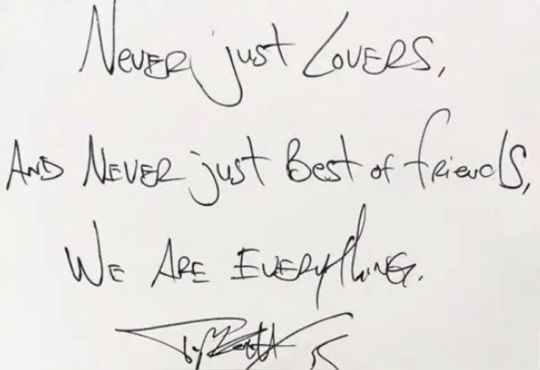 Never just Lovers,
And Never just Best of friends,
We Are Everything.